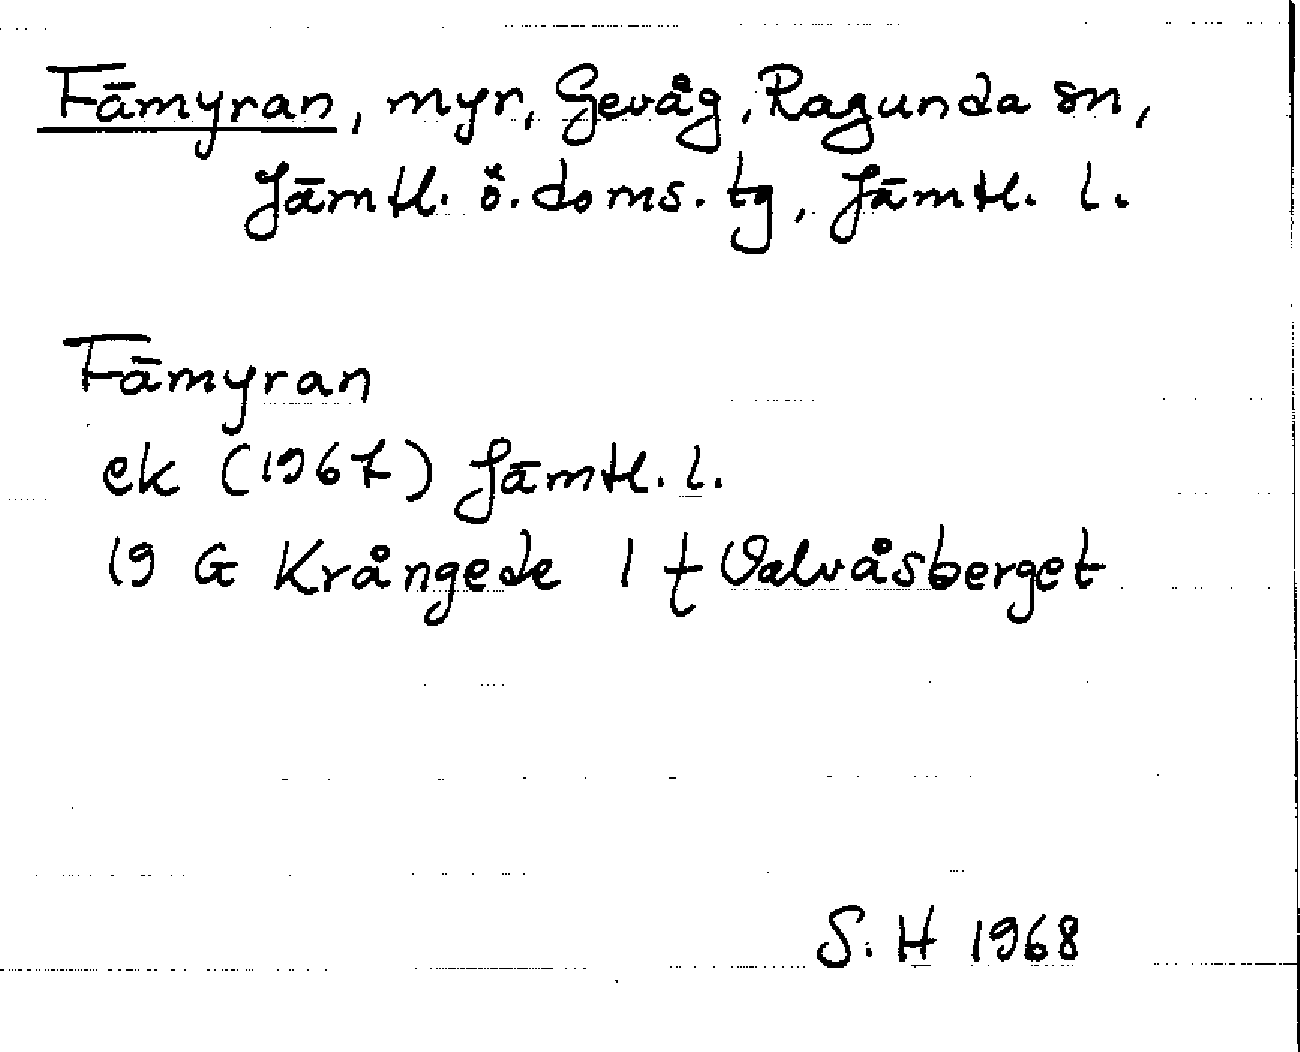 Fämyran, myr, Gevåg, Ragunda sn,
Jämtl. ö. doms. tg, Jämtl. l.
Fämyran
ek (1967) Jämtl. l.
19 G Krångede 1 t Valvåsberget
S. H 1968